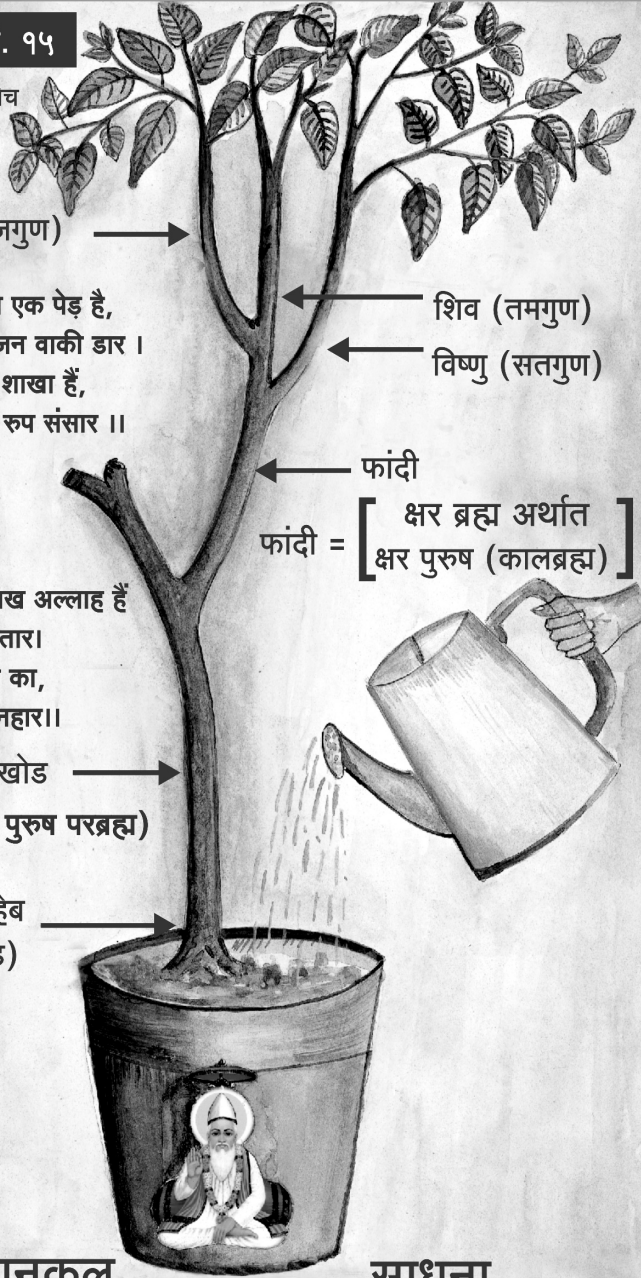 . १५
च
गुण)
एक पेड़ है,
जन वाकी डार ।
शाखा हैं,
रुप संसार ।।
शिव (तमगुण)
विष्णु (सतगुण)
फांदी
फांदी = [ क्षर ब्रह्म अर्थात
क्षर पुरुष (कालब्रह्म) ]
ख अल्लाह हैं
तार।
का,
नहार।।
खोड
पुरुष परब्रह्म)
साधना